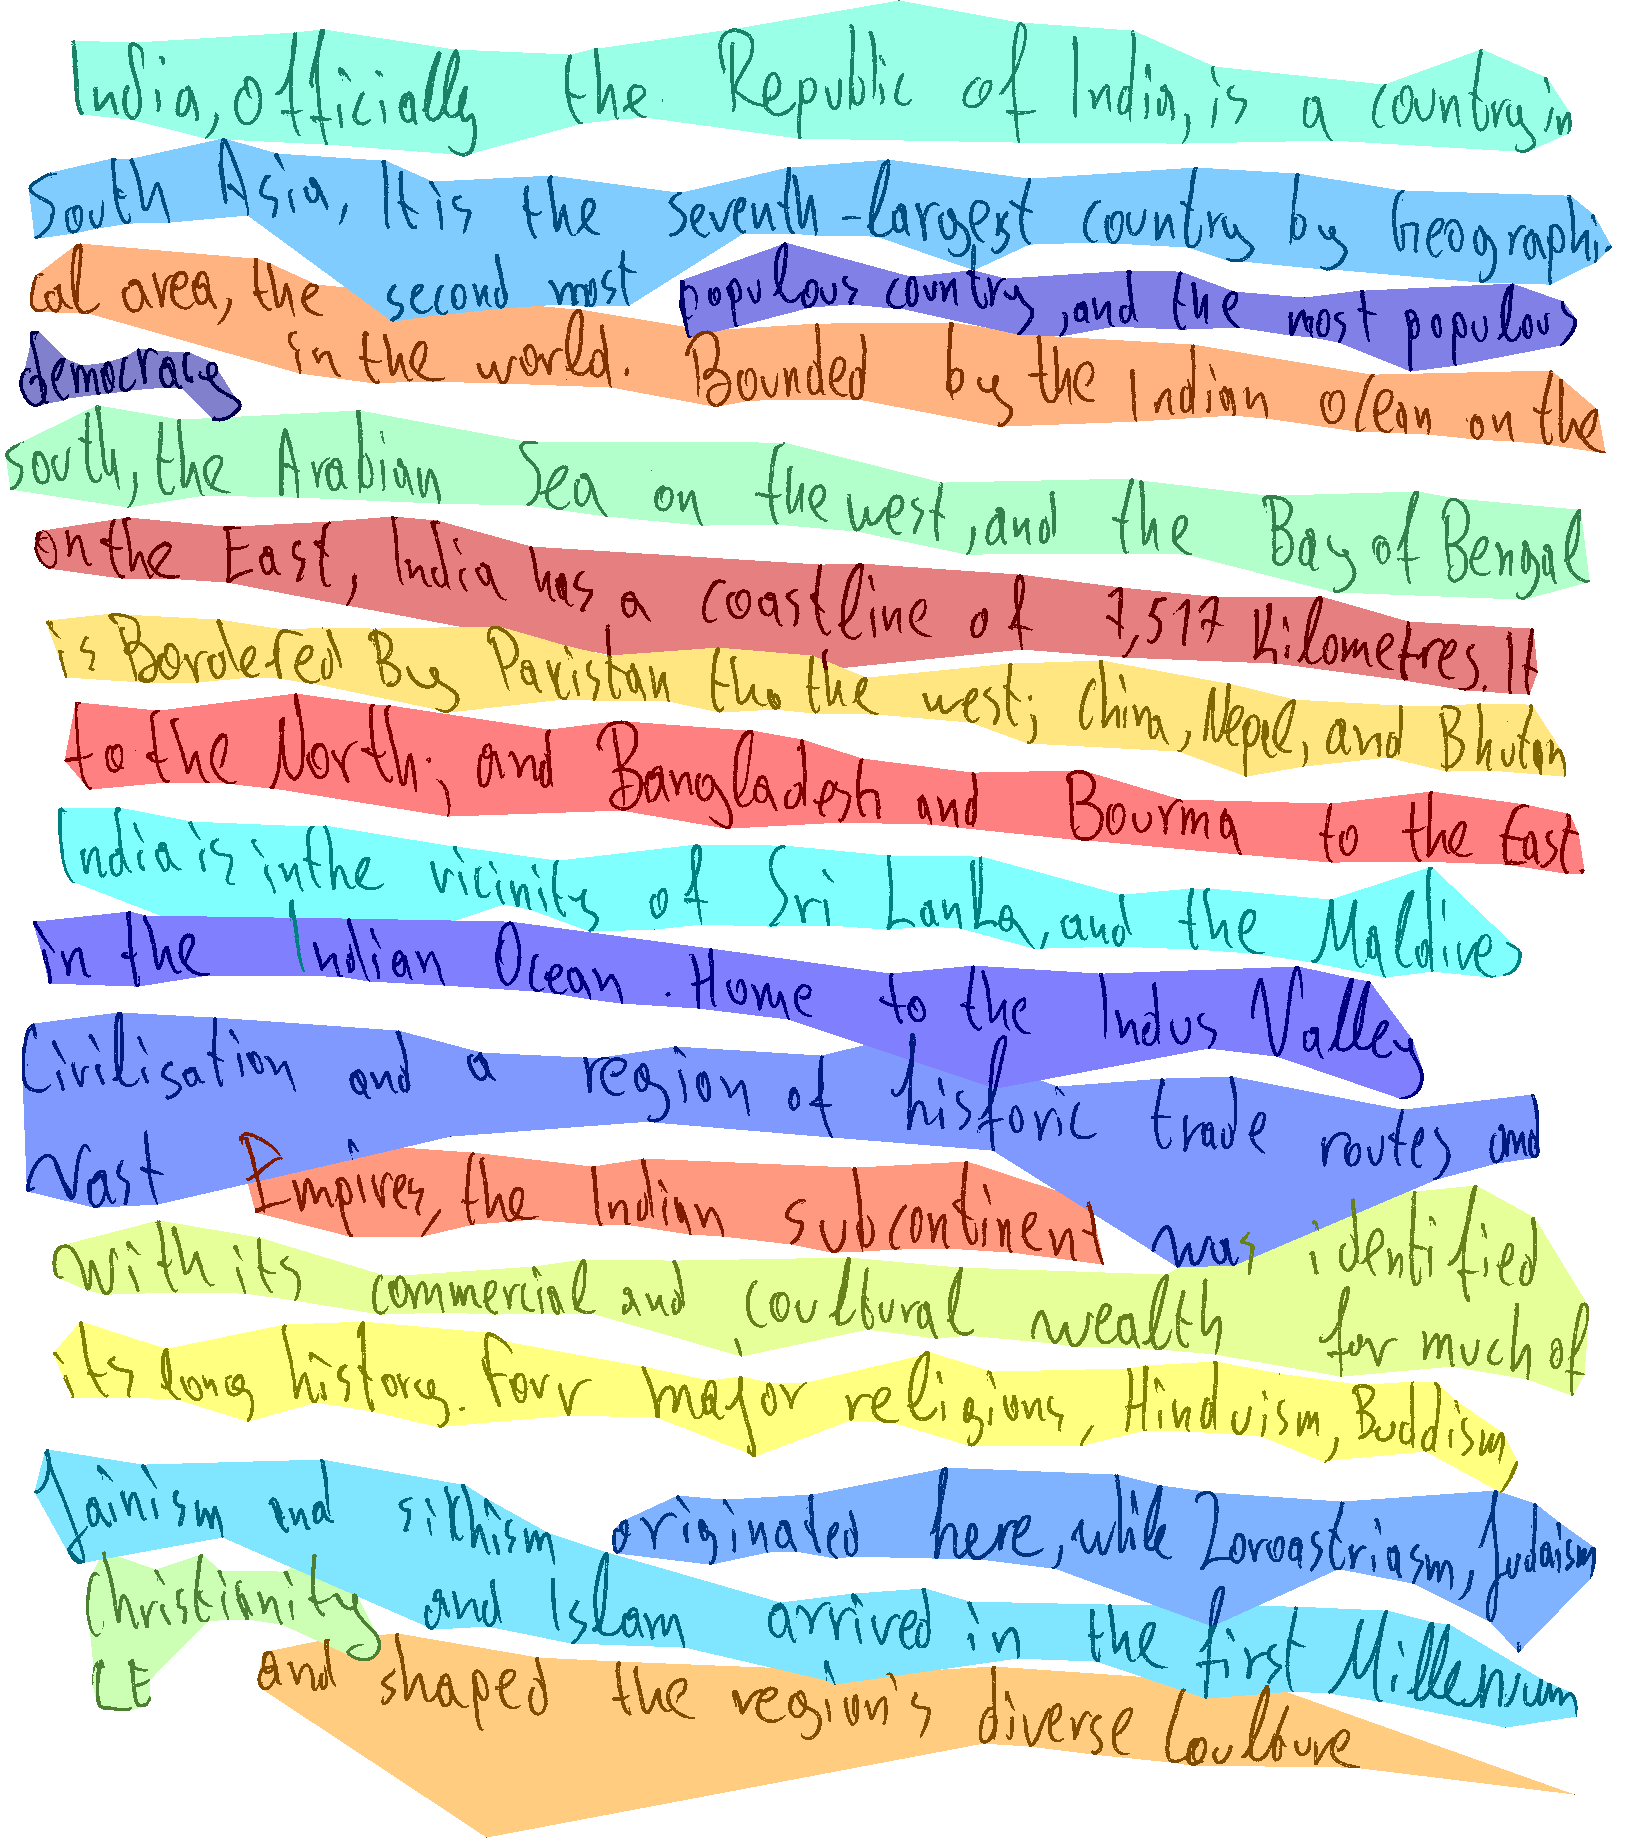 India, officially the Republic of India, is a country in
South Asia, It is the seventh-largest country by Geographi-
cal area, the second most populous country, and the most populous
democracy in the world. Bounded by the Indian Ocean on the
south, the Arabian Sea on the west, and the Bay of Bengal
on the East, India has a coastline of 7,517 Kilometres. It
is Bordered By Pakistan tho the west; China, Nepel, and Bhutan
to the North; and Bangladesh and Bourma to the East.
India is in the vicinity of Sri Lanka, and the Maldives
in the Indian Ocean. Home to the Indus Valley
Civilisation and a region of historic trade routes and
Vast Empires, the Indian subcontinent was identified
with its commercial and coultural wealth for much of
its long history. Four major religions, Hinduism, Buddism,
Jainism and sikhism originated here, while Zoroastriasm, Judaism
Christianity and Islam arrived in the first Millenium
CE and shaped the region's diverse Coulture